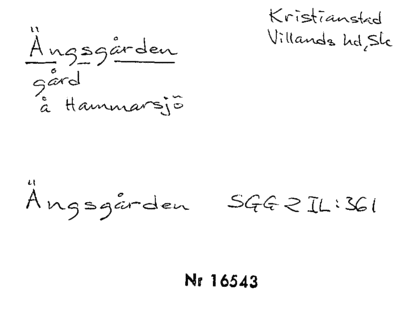 Ängsgården
gård
å Hammarsjö
Kristianstad
Villands hd, Sk
Ängsgården SGG 2 IL:361
Nr 16543